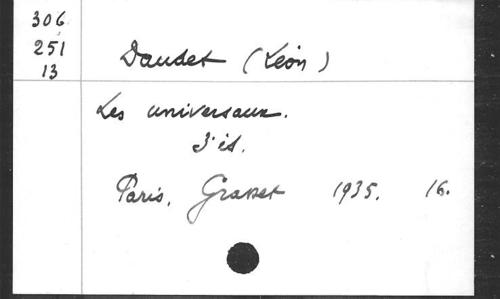 306
251
13
Daudet (Léon)
Les universaux.
3' éd.
Paris, Grasset 1935. 16.